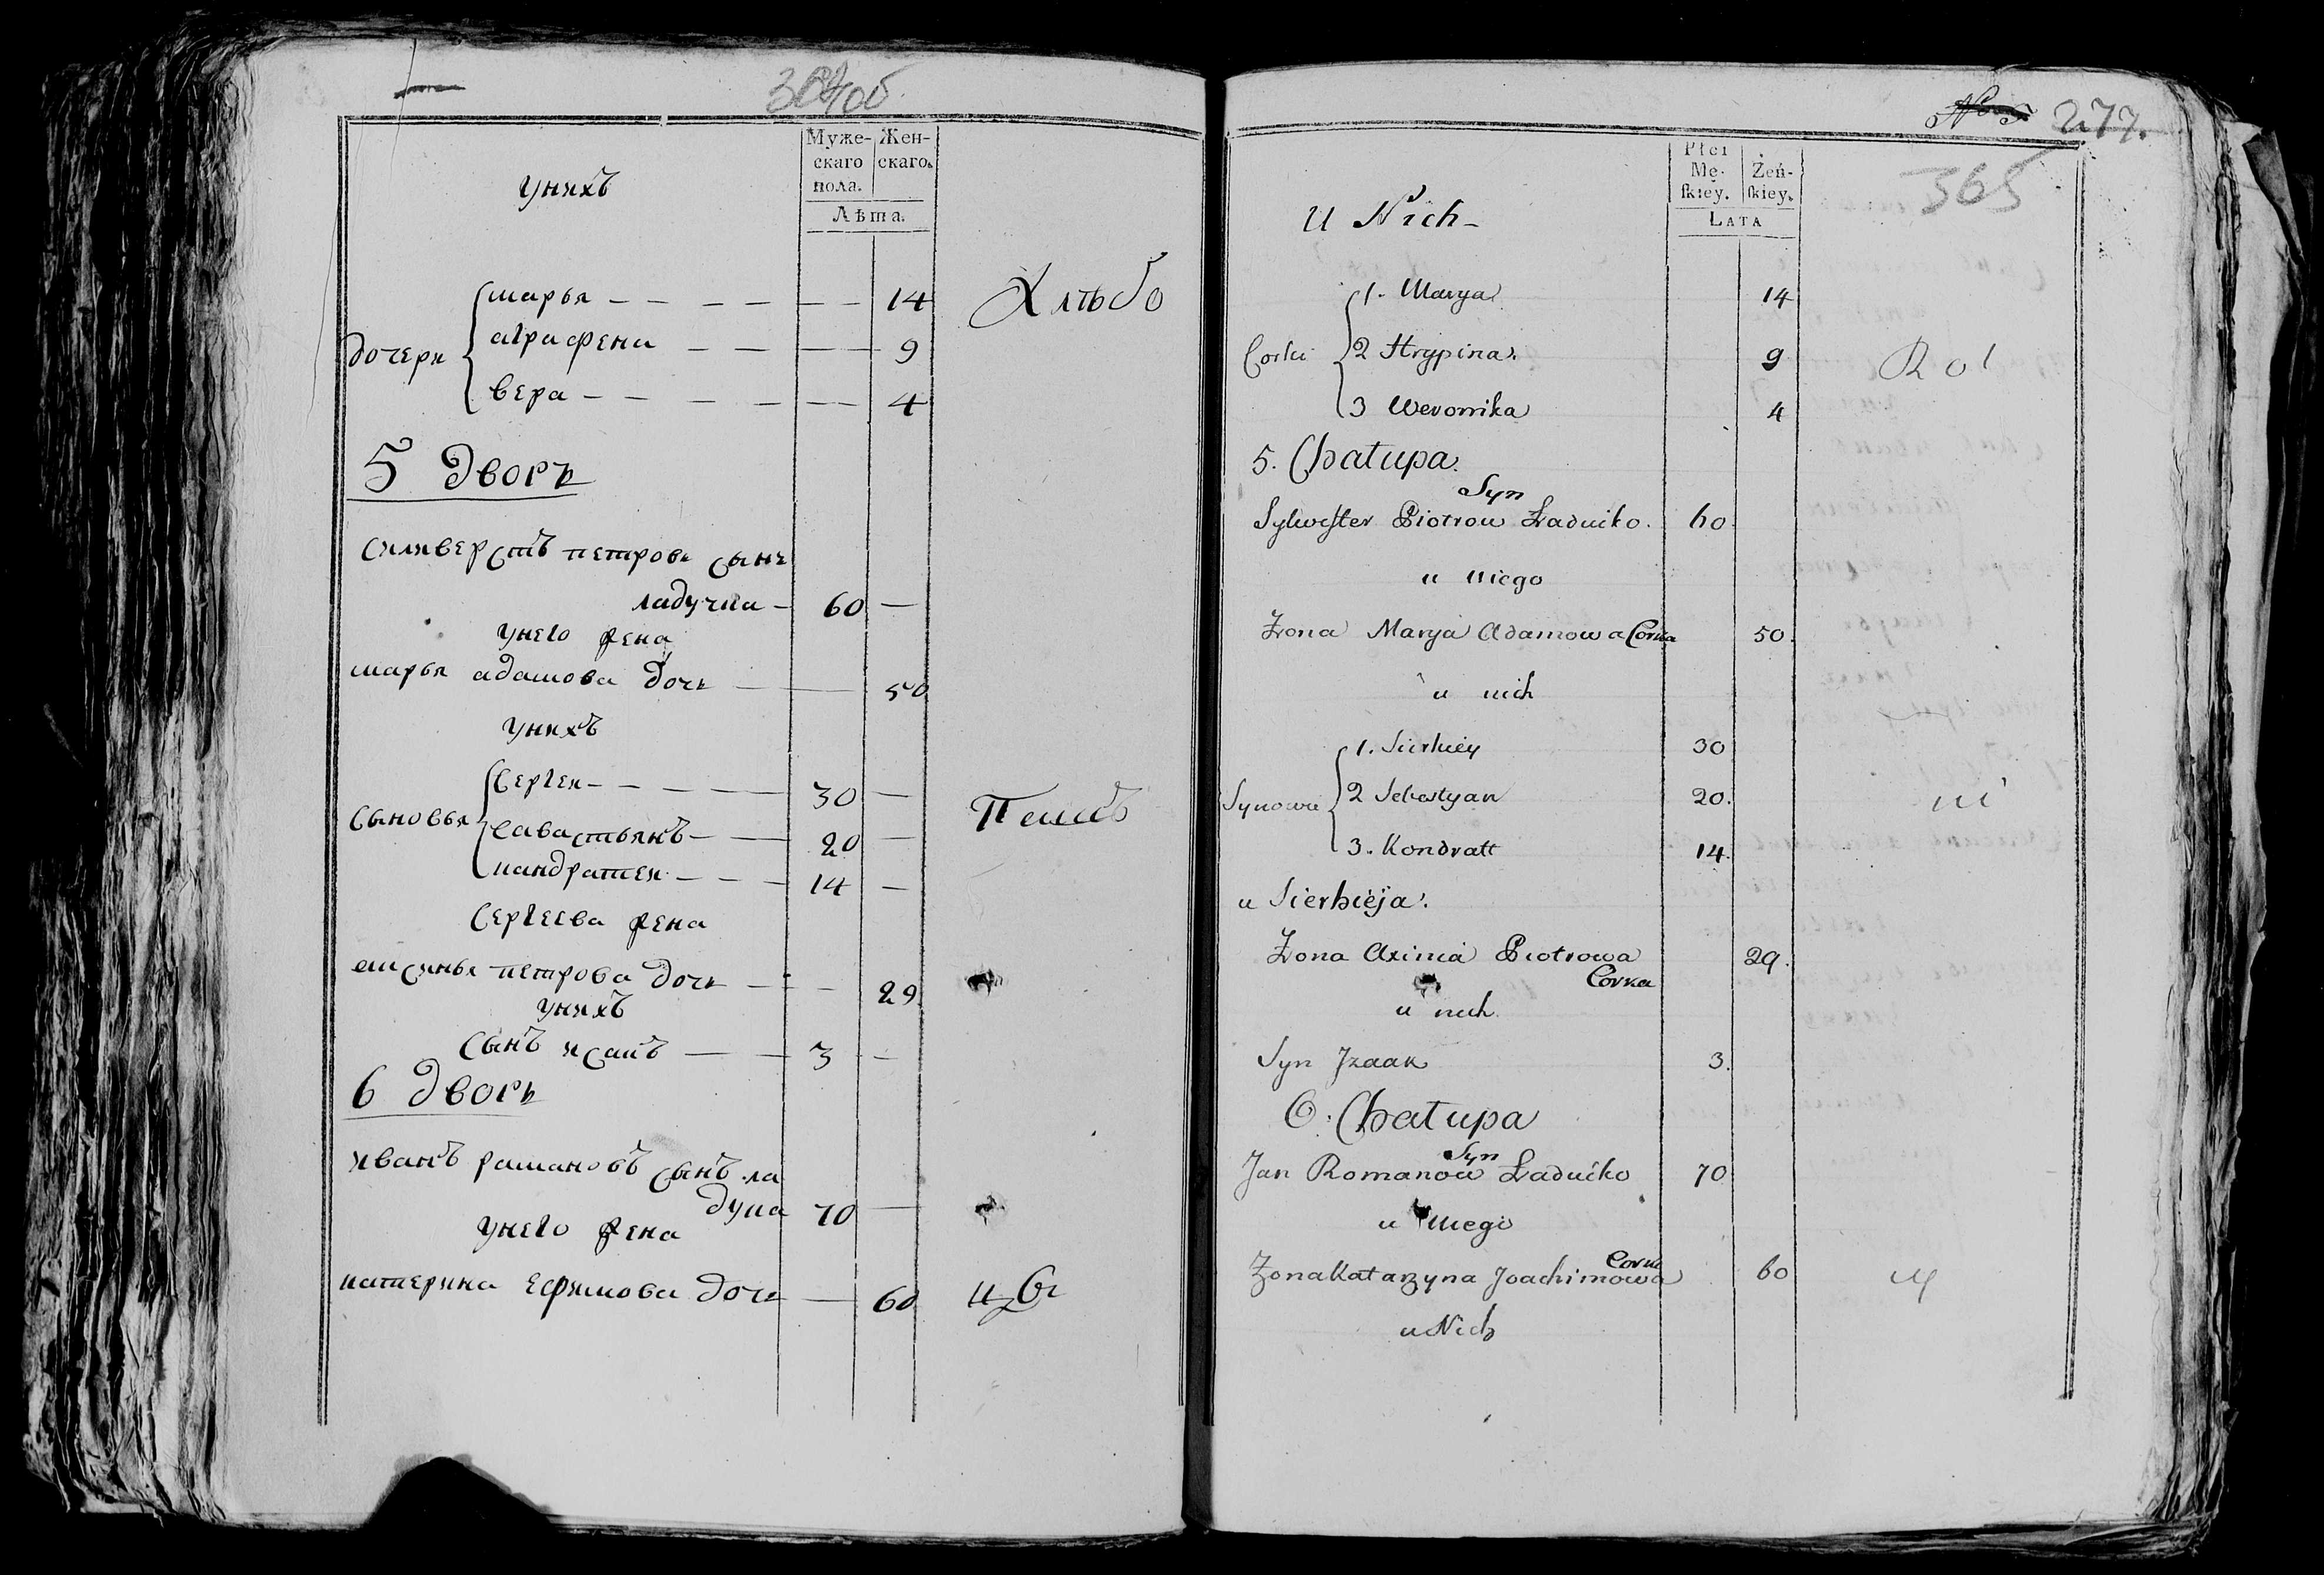 Муже-
скаго
пола.
Жен-
скаго.
Лѣта.
унихъ
дочери
марья — — — — — — 14
аграфена — — — — 9
вера — — — — — — 4
Хлѣбо
5 дворъ
силиверстъ петровъ сынъ
ладучка — 60 —
унего жена
марья адамова дочь — — 50
унихъ
сыновья
сергеи — — — — — 30 —
савастьянъ — — 20 —
кандратеи — — — 14 —
Сергеева жена
аксинья петрова дочь — — — 29
унихъ
сынъ исакъ — — 3 —
6 дворъ
иванъ рамановъ сынъ ла
дука 70 —
унего жена
катерина ефимова дочь — 60
277.
365
Płci
Mę-
ſkiey.
Żeń-
ſkiey.
LATA
U Nich
Corki
1. Marya 14
2 Hrypina 9
3 Weronika 4
5. Chałupa.
Syn
Sylwester Piotrow Ładućko. 60
u niego
Żona Marya Adamowa Corka 50.
u nich
Synowie
1. Sierhiey 30
2 Sebestyan 20.
3. Kondratt 14.
u Sierhieja.
Żona Axinia Piotrowa 29.
Corka
u nich
Syn Jzaak 3.
6. Chałupa
Syn
Jan Romanow Ładućko 70
u niego
Corka
Żona Katarzyna Joachimowa 60
u Nich